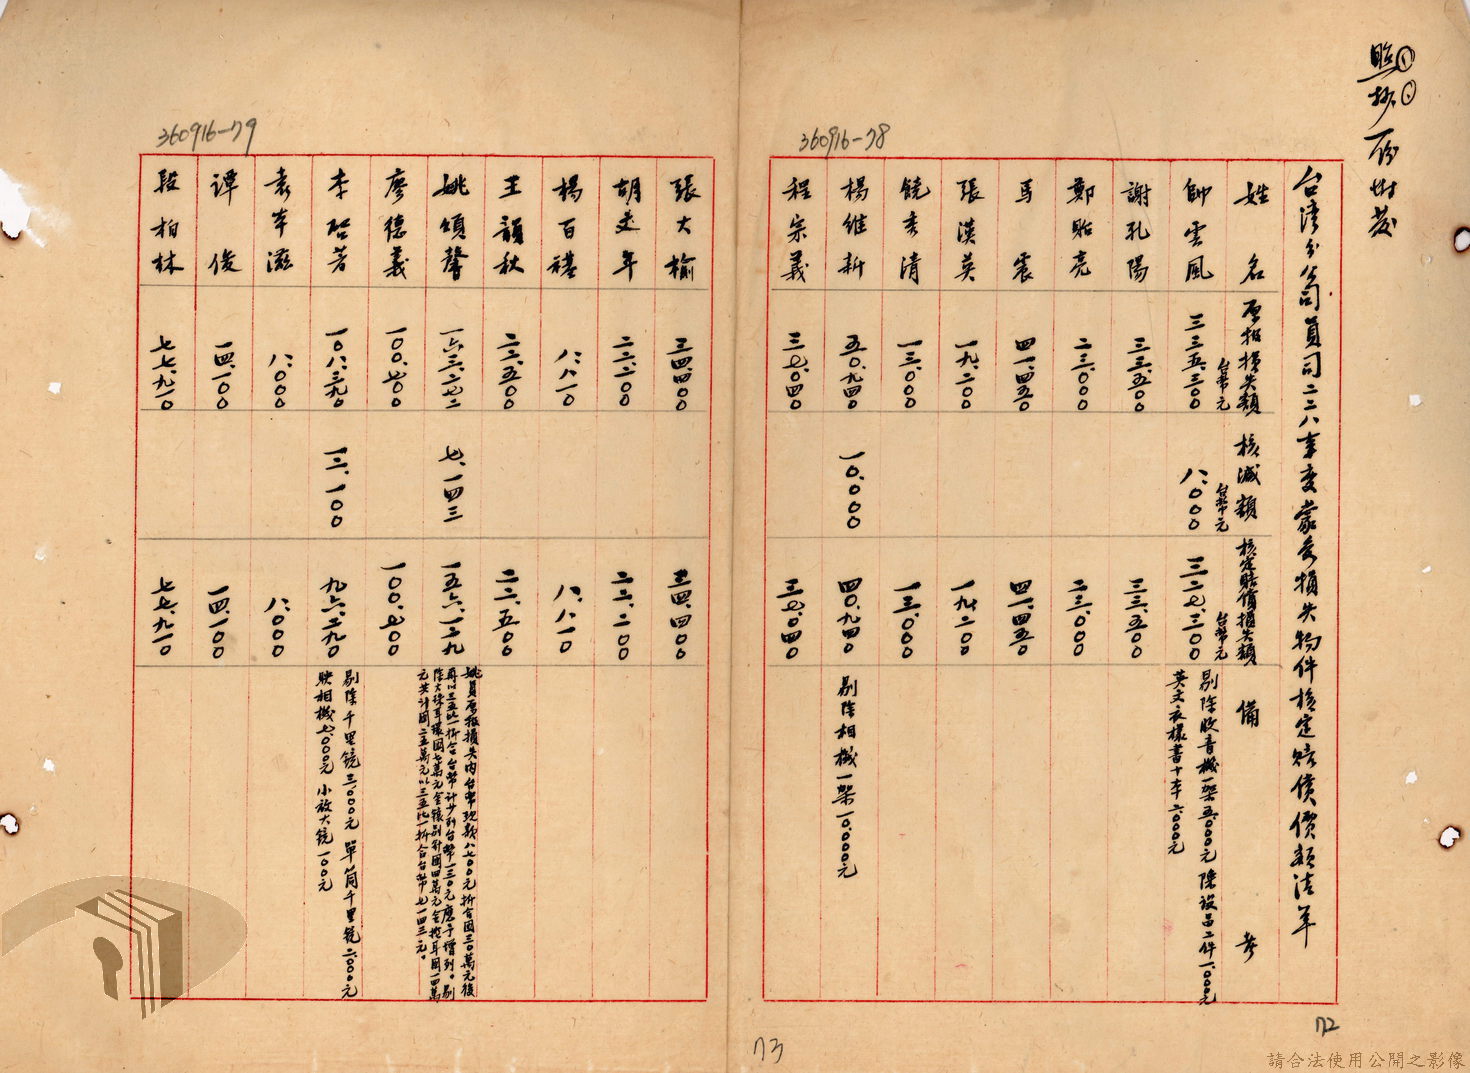 照抄一份附發
360916-78
台灣分公司員司二二八事變蒙受損失物件核定賠償價額清單
姓名 原報損失額台幣元 核減額台幣元 核定賠償損失額台幣元 備考
帥雲風 三三五.三〇〇 八.〇〇〇 三二七.三〇〇 剔除收音機一架五.〇〇〇元 陳設品二件一.〇〇〇元
英文衣樣書十本二.〇〇〇元
謝孔陽 三三.五〇〇 三三.五〇〇
鄭貽亮 二三.〇〇〇 二三.〇〇〇
馬震 四一.四五〇 四一.四五〇
張漢英 一九.二〇〇 一九.二〇〇
饒秀清 一三.〇〇〇 一三.〇〇〇
楊維新 五〇.九四〇 一〇.〇〇〇 四〇.九四〇 剔除相機一架一〇.〇〇〇元
程宗義 三七.〇四〇 三七.〇四〇
72
360916-79
張大榆 三四.四〇〇 三四.四〇〇
胡文年 二二.二〇〇 二二.二〇〇
楊百祺 八.八一〇 八.八一〇
王韻秋 二二.五〇〇 二二.五〇〇
姚頌馨 一六三.二七二 七.一四三 一五六.一二九 姚員原報損失內台幣現款八七〇〇元折合國三〇萬元後
再以三五比一折合台幣計少列台幣一三〇元應予增列。剔
除大珠耳環國七萬元金鑲別針國四萬元金挖耳國一四萬
元共計國二五萬元以三五比一折合台幣七一四三元。
廖德義 一〇〇.七〇〇 一〇〇.七〇〇
李啟著 一〇八.三九〇 一二.一〇〇 九六.二九〇 剔除千里鏡三.〇〇〇元 單筒千里鏡二.〇〇〇元
映相機七.〇〇〇元 小放大鏡一〇〇元
袁本滋 八.〇〇〇 八.〇〇〇
譚俊 一四.一〇〇 一四.一〇〇
段柏林 七七.九一〇 七七.九一〇
73
請合法使用公開之影像